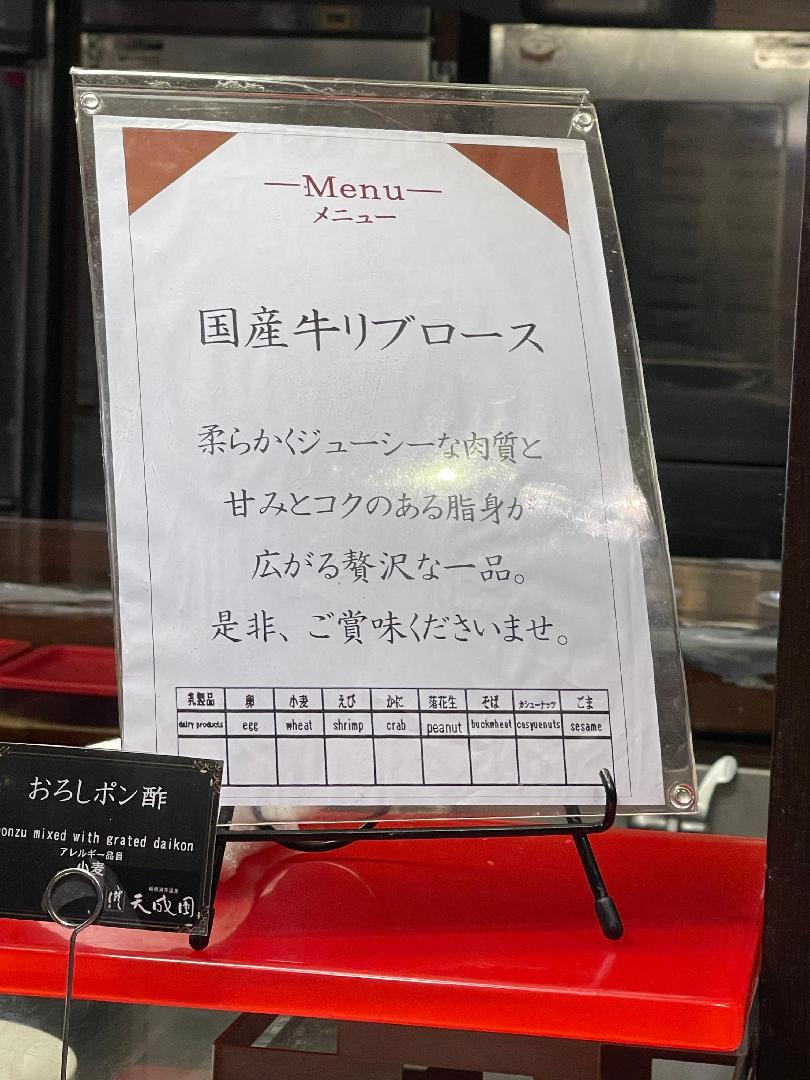 —Menu—
メニュー
国産牛リブロース
柔らかくジューシーな肉質と
甘みとコクのある脂身が
広がる贅沢な一品。
是非、ご賞味くださいませ。
乳製品 卵 小麦 えび かに 落花生 そば カシューナッツ ごま
dairy products egg wheat shrimp crab peanut buckwheat casyuenuts sesame
おろしポン酢
onzu mixed with grated daikon
アレルギー品目
小麦
天成園